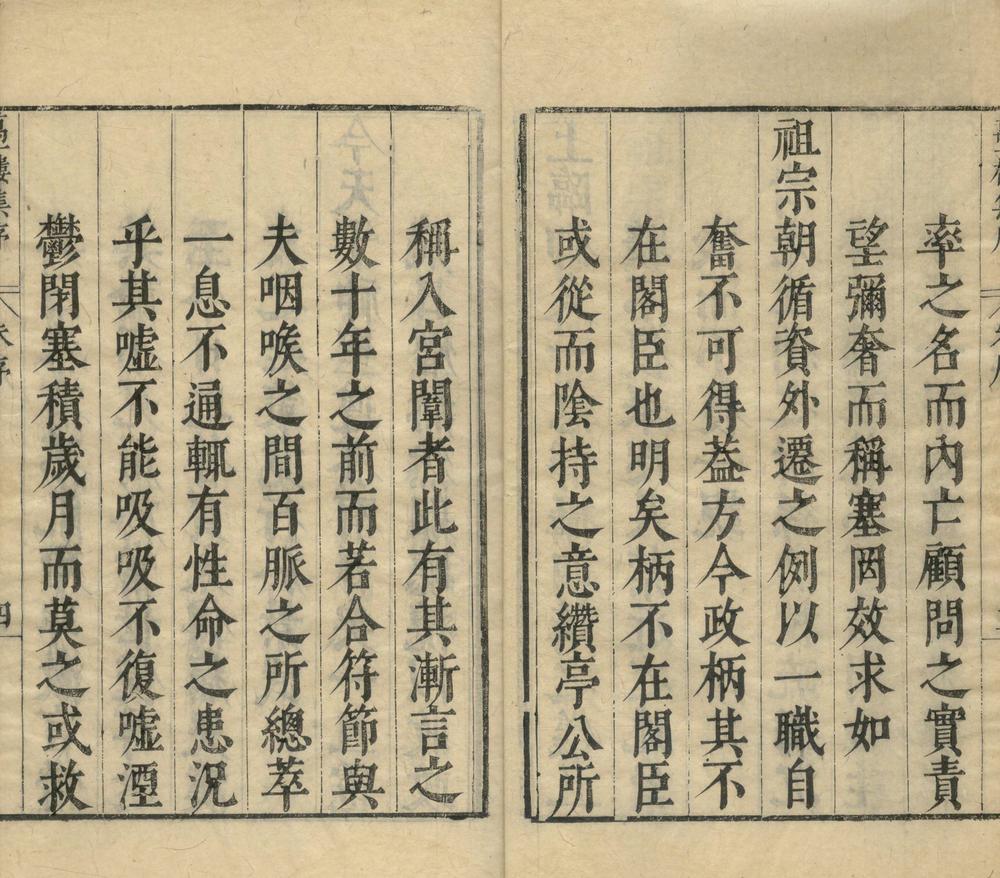 率之名而内亡顧問之實責
望彌奢而稱塞罔效求如
祖宗朝循資外遷之例以一職自
奮不可得葢方今政柄其不
在閣臣也明矣柄不在閣臣
或從而陰持之意纘亭公所
稱入宮闈者此有其漸言之
數十年之前而若合符節與
夫咽喉之間百脈之所總萃
一息不通輒有性命之患況
乎其噓不能吸吸不復噓湮
鬱閉塞積歲月而莫之或救
樓集序 朱序 四